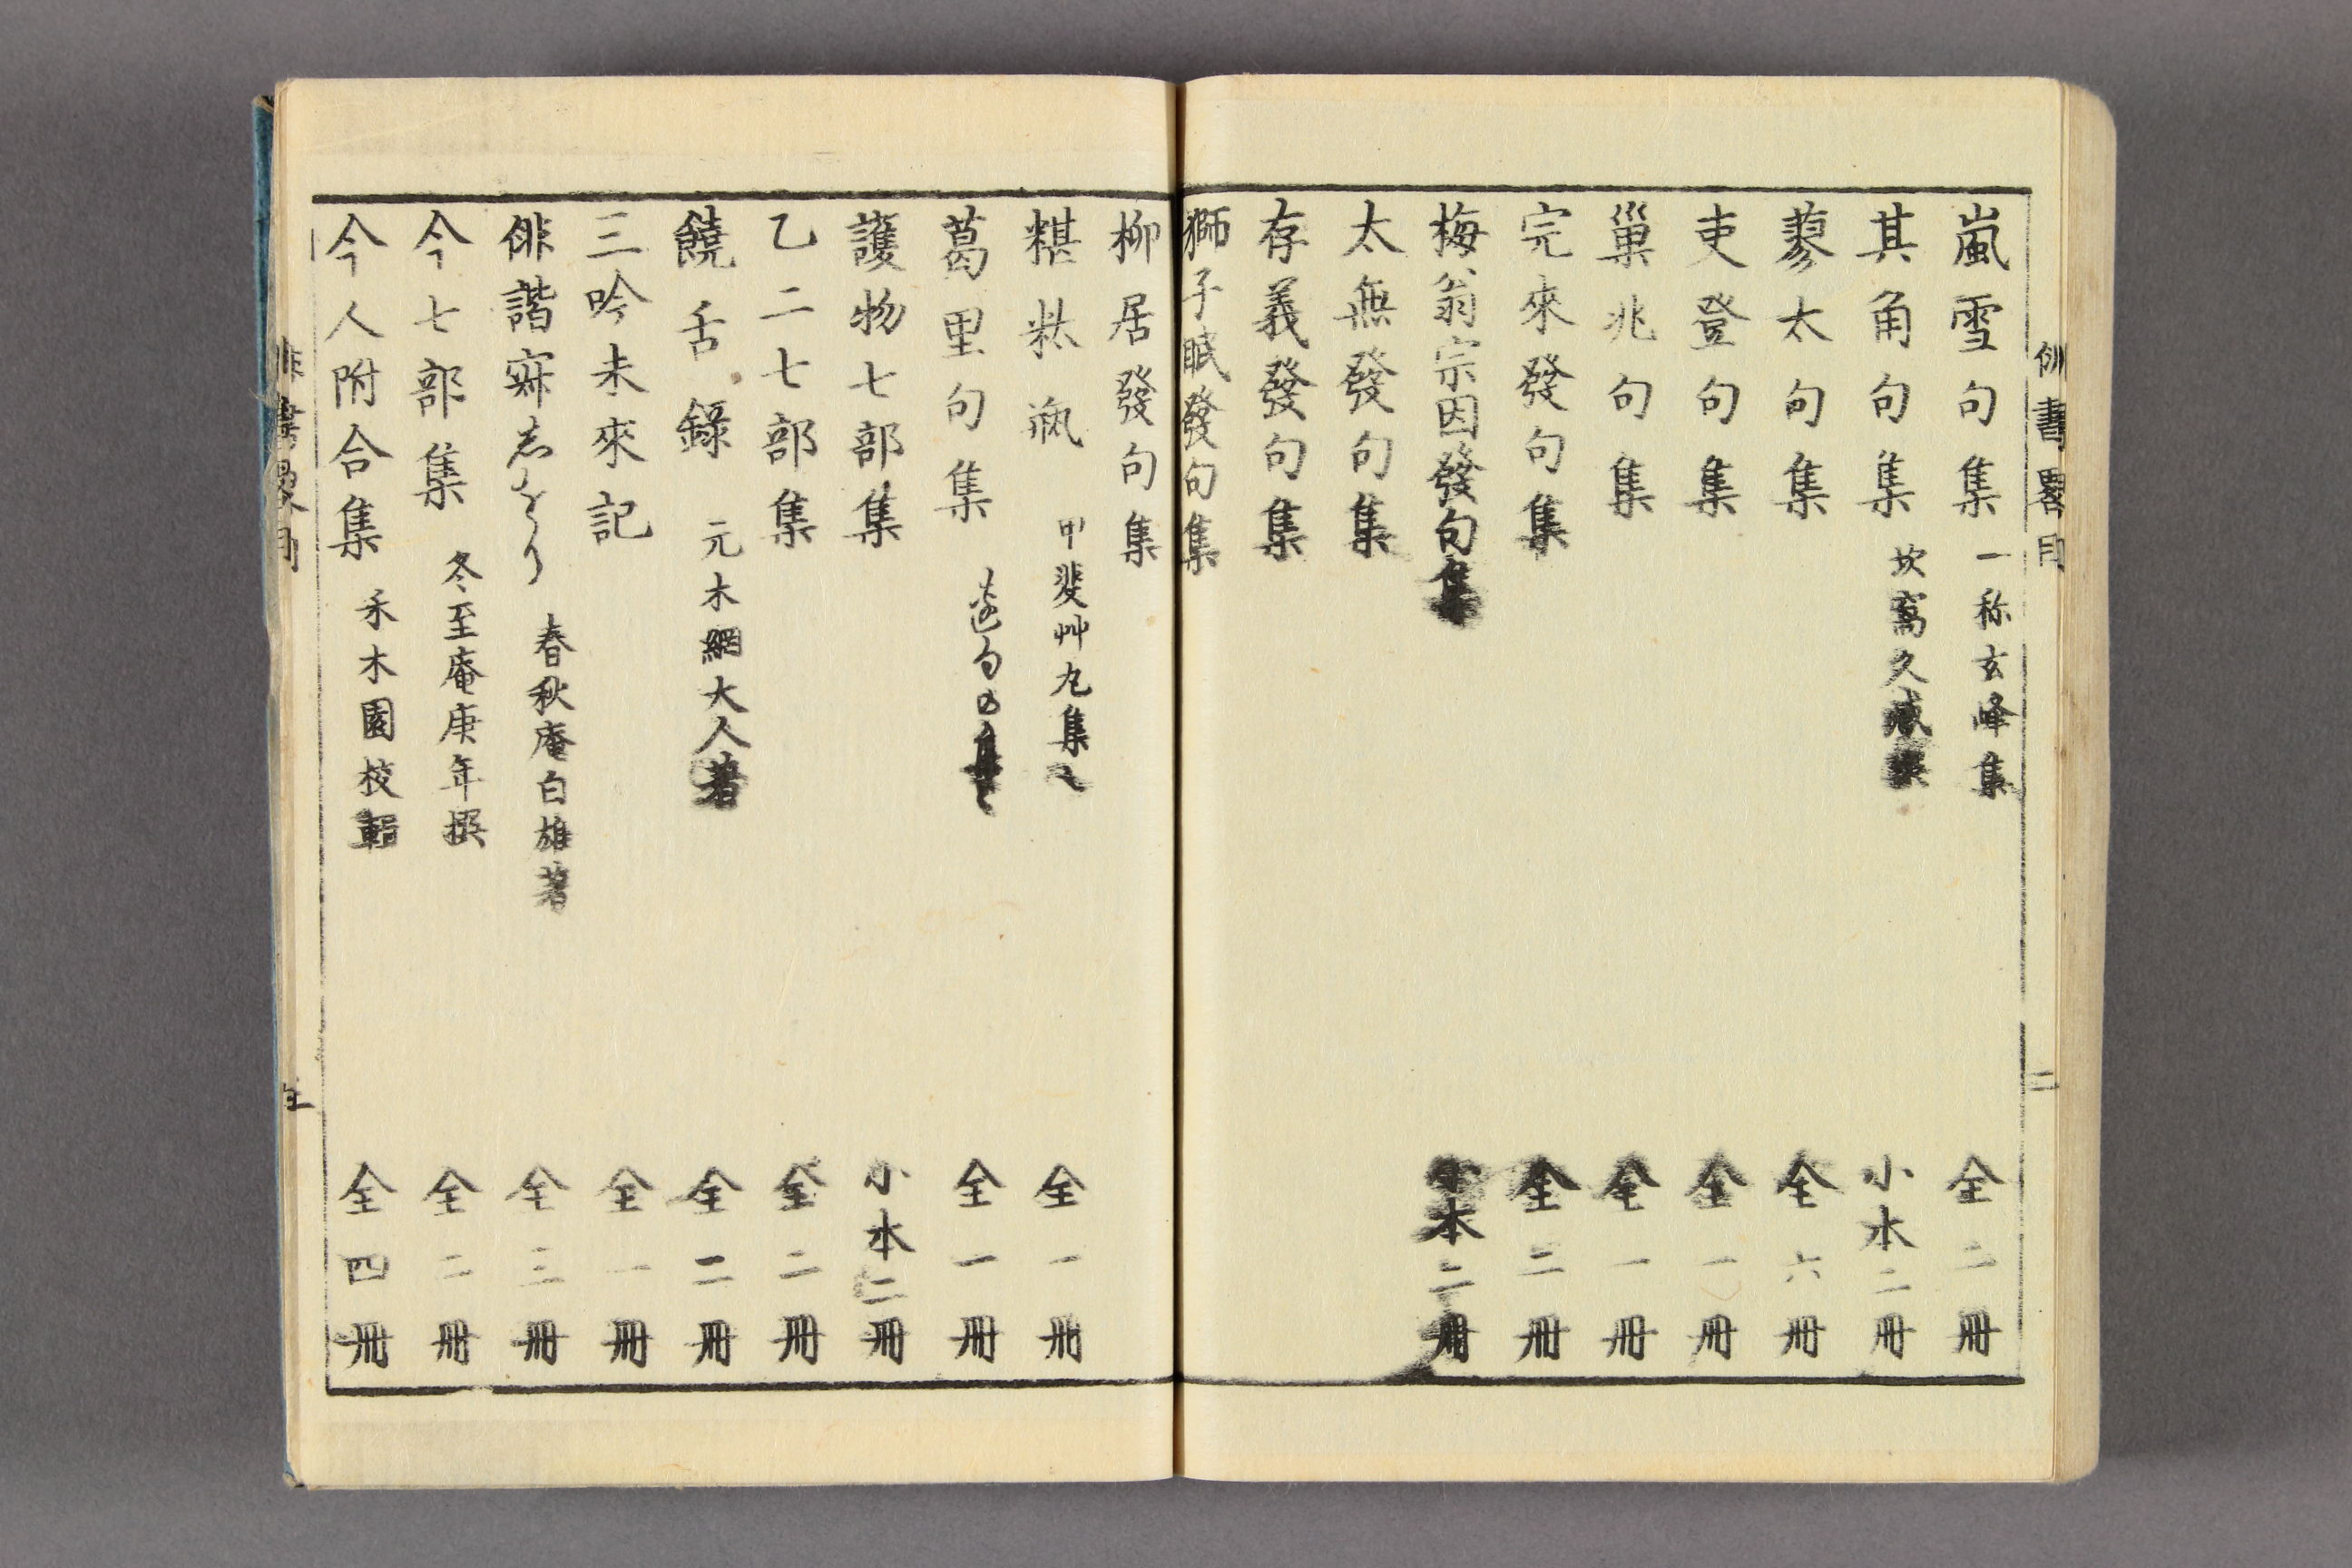 俳書畧目
嵐雪句集 一称玄峰集 全二冊
其角句集 坎窩久臧撰 小本二冊
蓼太句集 全六冊
吏登句集 全一冊
巢兆句集 全一冊
完來發句集 全二冊
梅翁宗因發句集 小本二冊
太無發句集
存義發句集
獅子眠發句集
二
柳居發句集
糂粏瓶 甲斐艸丸集 全一冊
葛里句集 全一冊
護物七部集 小本二冊
乙二七部集 全二冊
饒舌錄 元木網大人著 全二冊
三吟未來記 全一冊
俳諧寂志をり 春秋庵白雄著 全三冊
今七部集 冬至庵庚年撰 全二冊
今人附合集 禾木園校輯 全四冊
俳書畧目